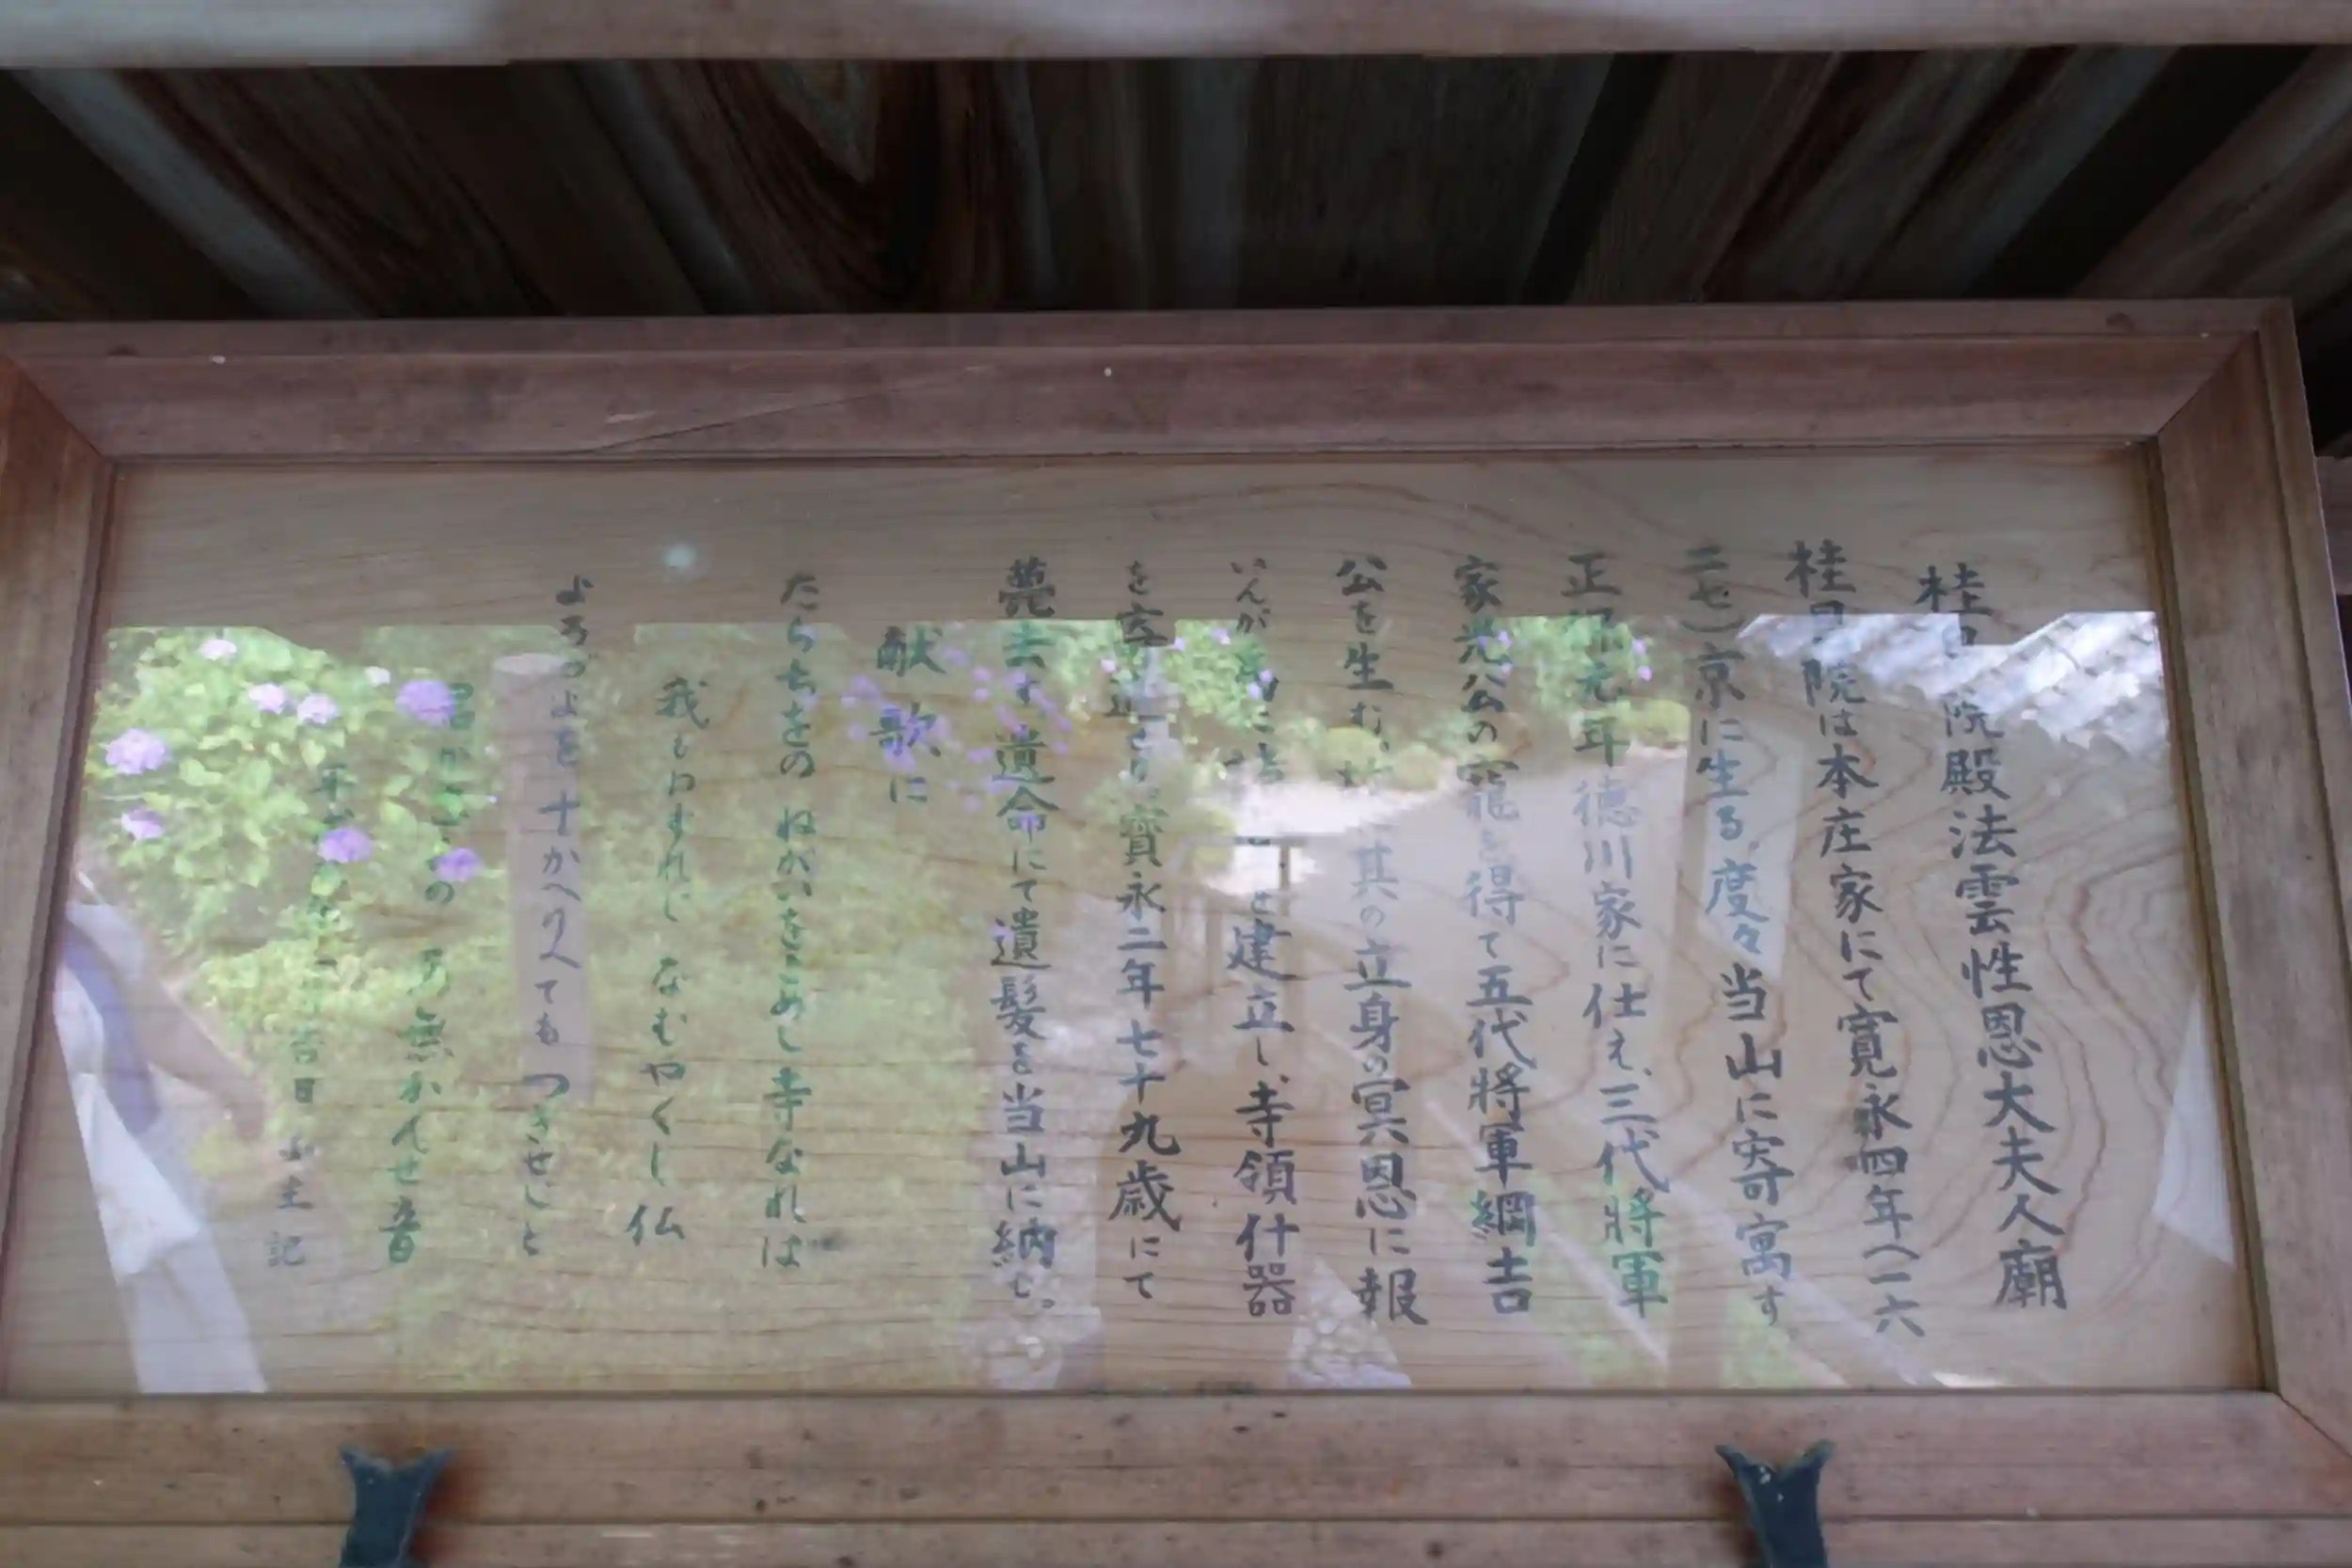 桂昌院殿法雲性恩大夫人廟
桂昌院は本庄家にて寛永四年(一六
二七)京に生る。度々当山に寄寓す
正保元年徳川家に仕え、三代将軍
家光公の寵を得て五代将軍綱吉
公を生む。其の立身の冥恩に報
いんが為に建立し、寺領什器
を寄進さる。寳永二年七十九歳にて
薨去す。遺命にて遺髪を当山に納む。
献歌に
たらちをの ねがいをこめし寺なれば
我もわすれじ なむやくし仏
よろづよを十かへりへても つきせじと
の 無かんせ音
平 吉日 山主記